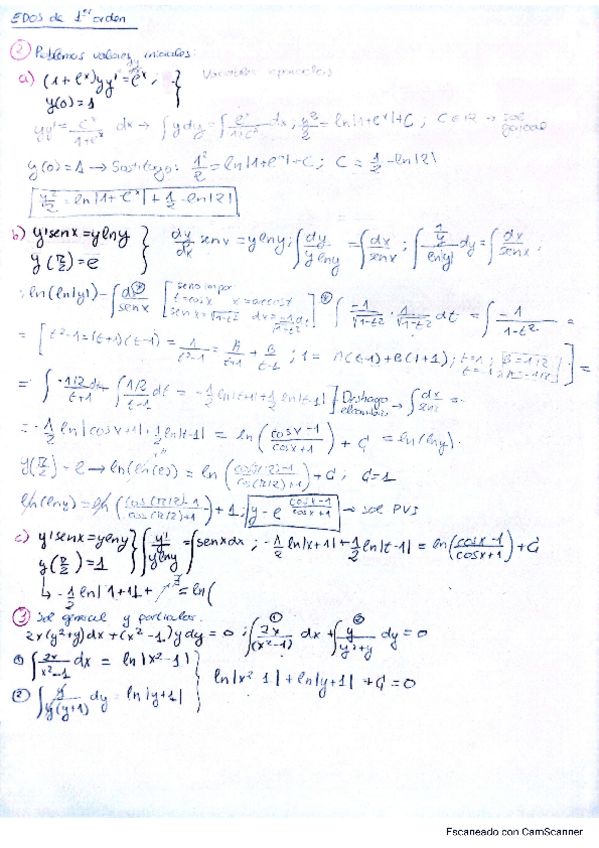 EDOS de 1er orden
② Problemas valores iniciales:
a) (1+e^x)yy' = e^x ; } Variables separables
y(0)=1
yy' = e^x/(1+e^x) dx → ∫ydy = ∫ e^x/(1+e^x) dx ; y²/2 = ln|1+e^x|+C ; C∈R → sol general
y(0)=1 → Sustituyo: 1²/2 = ln|1+e^0|+C ; C = 1/2 - ln|2|
y²/2 = ln|1+e^x| + 1/2 - ln|2|
b) y'senx = ylny } dy/dx senx = ylny ; ∫ dy/(ylny) = ∫ dx/senx ; ∫ (1/y)/(ln|y|) dy = ∫ dx/senx ;
y(π/2) = e
; ln(ln|y|) - ∫ dx/senx [ seno impar
t=cosx x=arccost
senx=√(1-t²) dx = -1/√(1-t²) dt ] ∫ -1/√(1-t²) · 1/√(1-t²) dt = ∫ -1/(1-t²) =
= [ t²-1=(t+1)(t-1) = 1/(t²-1) = A/(t+1) + B/(t-1) ; 1 = A(t-1)+B(t+1) ; t=1 ; B=1/2
t=-1 ; A=-1/2 ] =
= ∫ (-1/2)/(t+1) dt + ∫ (1/2)/(t-1) dt = -1/2 ln|t+1| + 1/2 ln|t-1| ] Deshago → ∫ dx/senx =
= -1/2 ln|cosx+1| + 1/2 ln|t-1| = ln((cosx-1)/(cosx+1)) + C = ln(lny).
y(π/2) = e → ln(ln(e)) = ln((cos(π/2)-1)/(cos(π/2)+1)) + C ; C=1
ln(lny) = ln((cos(π/2)-1)/(cos(π/2)+1)) + 1 ; y = e^((cosx-1)/(cosx+1)) → sol PVI
c) y'senx = ylny } ∫ y'/(ylny) = ∫ senxdx ; -1/2 ln|x+1| + 1/2 ln|t-1| = ln((cosx-1)/(cosx+1)) + C
y(π/2) = 1
↳ -1/2 ln|1+1| + = ln(
③ Sol general y particular.
2x(y²+y)dx + (x²-1)ydy = 0 ; ∫ 2x/(x²-1) dx + ∫ y/(y²+y) dy = 0
① ∫ 2x/(x²-1) dx = ln|x²-1| } ln|x²-1| + ln|y+1| + C = 0
② ∫ y/(y(y+1)) dy = ln|y+1|
Escaneado con CamScanner